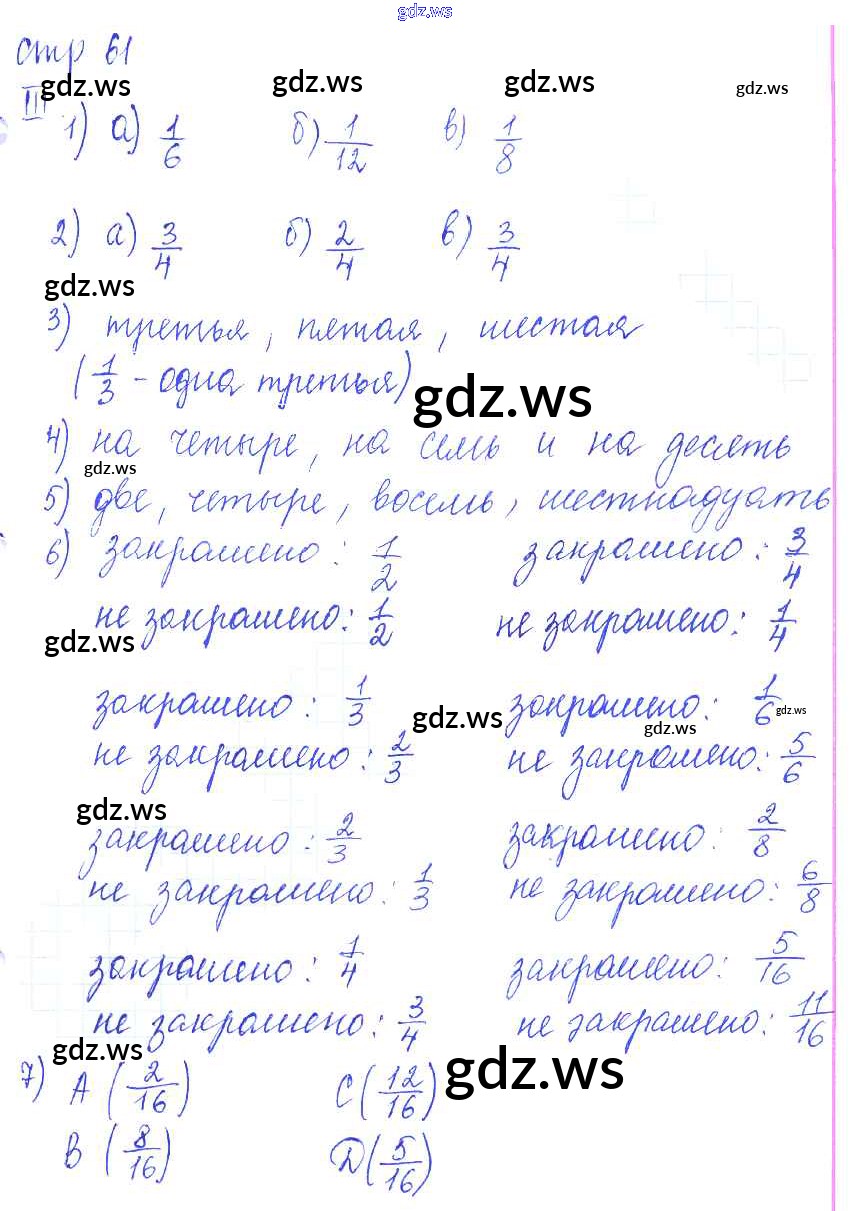 gdz.ws
стр 61
gdz.ws gdz.ws gdz.ws gdz.ws
III 1) а) 1/6 б) 1/12 в) 1/8
2) а) 3/4 б) 2/4 в) 3/4
gdz.ws
3) третья, пятая, шестая
(1/3 - одна третья)
gdz.ws
4) на четыре, на семь и на десять
gdz.ws
5) две, четыре, восемь, шестнадцать
6) закрашено: 1/2 закрашено: 3/4
не закрашено: 1/2 не закрашено: 1/4
gdz.ws
закрашено: 1/3 закрашено: 1/6
gdz.ws gdz.ws gdz.ws
не закрашено: 2/3 не закрашено: 5/6
gdz.ws
закрашено: 2/3 закрашено: 2/8
не закрашено: 1/3 не закрашено: 6/8
закрашено: 1/4 закрашено: 5/16
не закрашено: 3/4 не закрашено: 11/16
gdz.ws gdz.ws
7) A (2/16) C (12/16)
B (8/16) D (5/16)